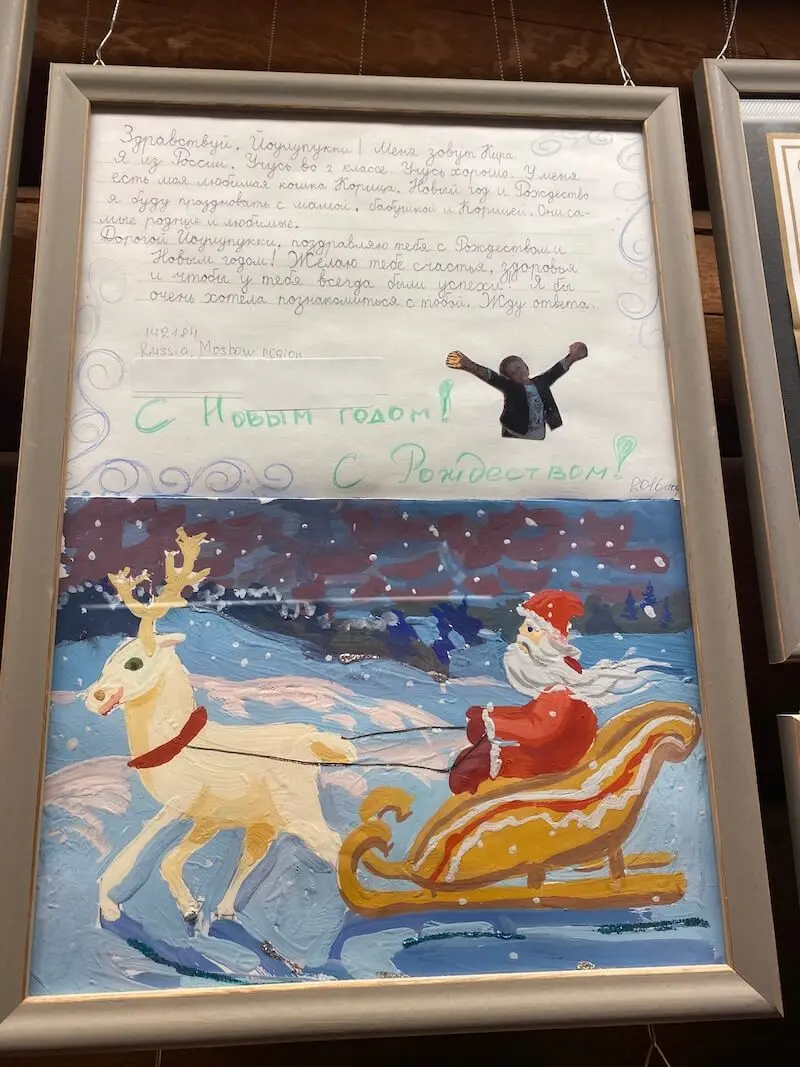 Здравствуй, Йоулупукки! Меня зовут Кира.
Я из России. Учусь во 2 классе. Учусь хорошо. У меня
есть моя любимая кошка Корица. Новый год и Рождество
я буду праздновать с мамой, бабушкой и Корицей. Они са-
мые родные и любимые.
Дорогой Йоулупукки, поздравляю тебя с Рождеством и
Новым годом! Желаю тебе счастья, здоровья
и чтобы у тебя всегда были успехи! Я бы
очень хотела познакомиться с тобой. Жду ответа...
142184
Russia, Moscow region
С Новым годом!
С Рождеством!
2016